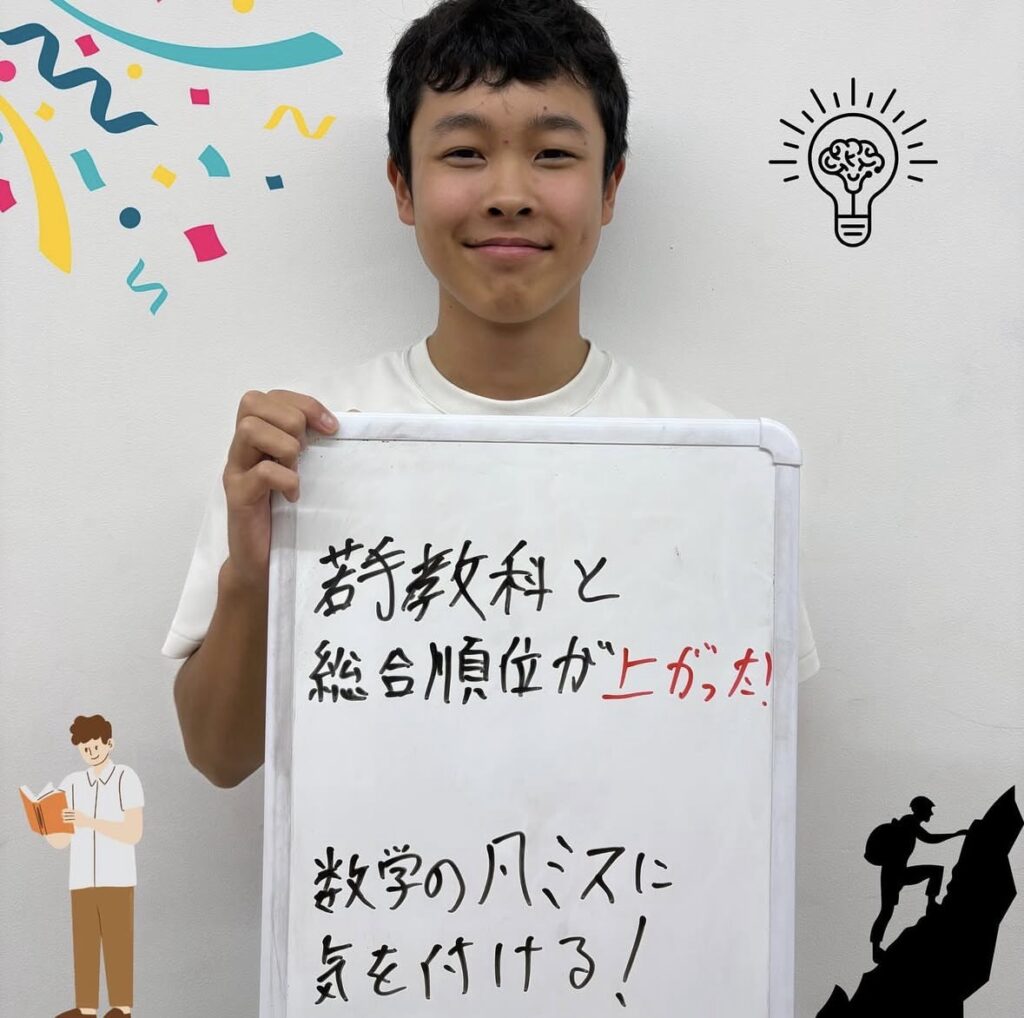 若手教科と
総合順位が上がった!
数学の凡ミスに
気を付ける!